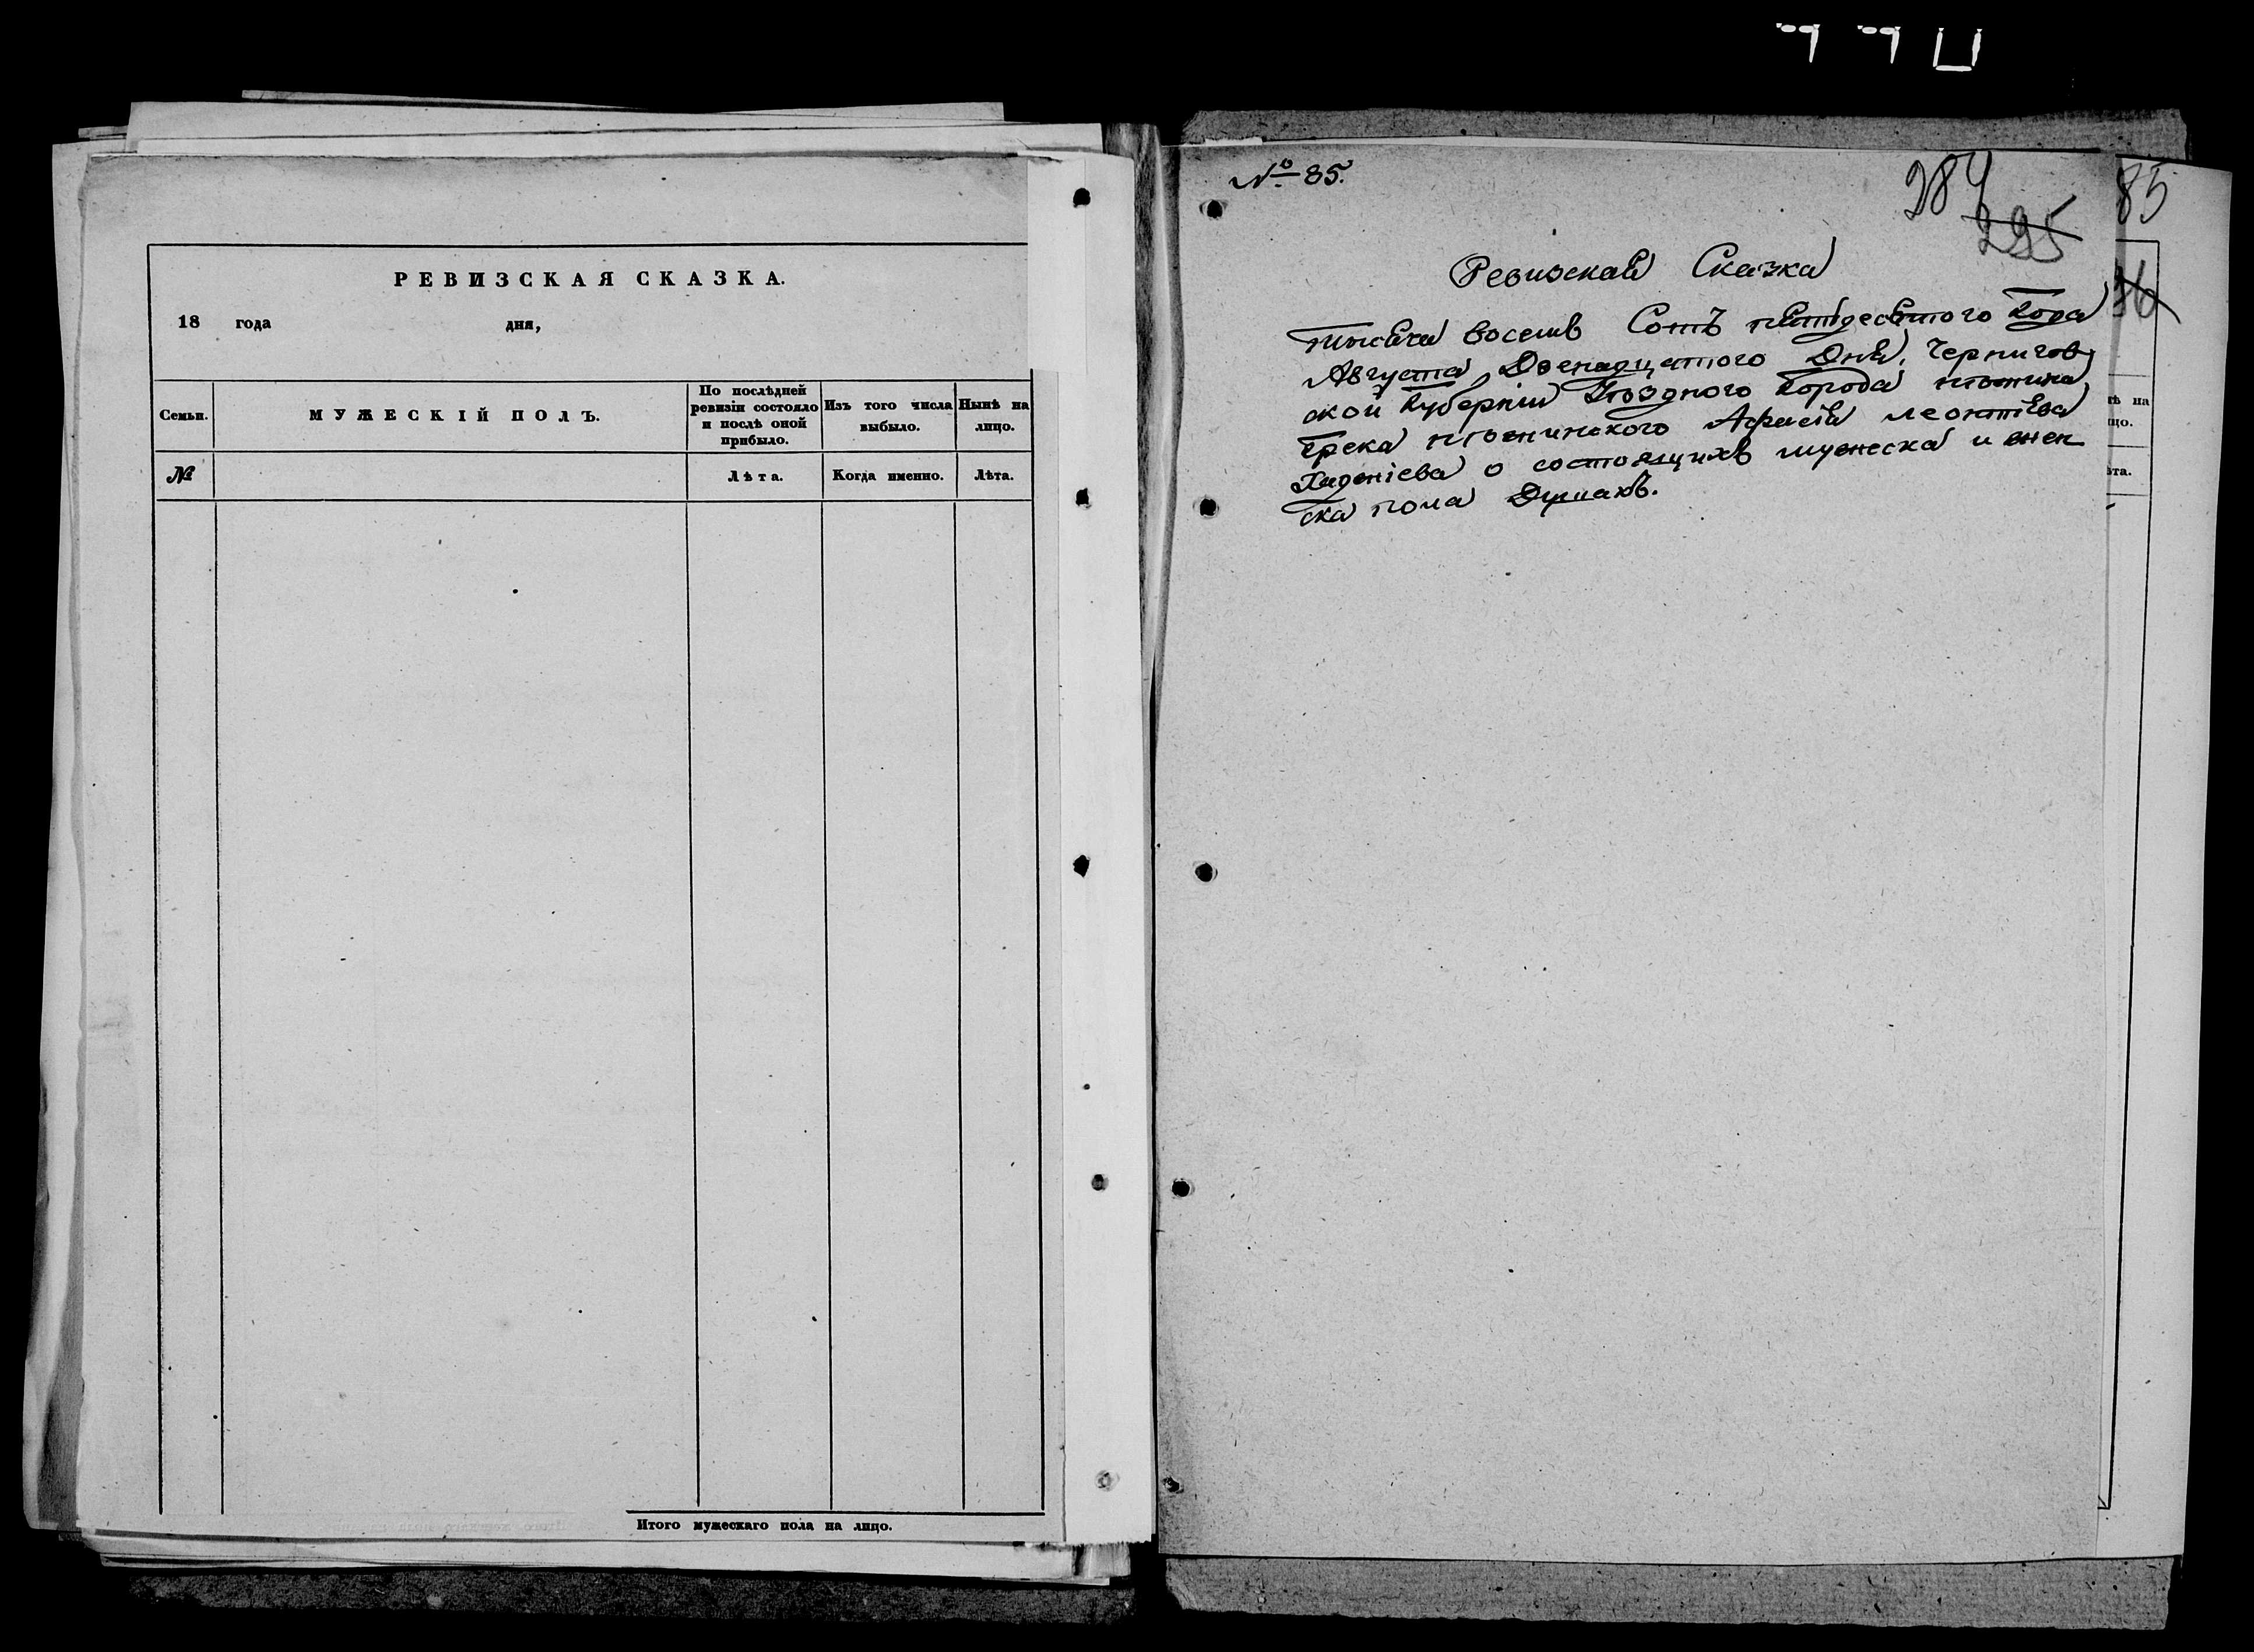 РЕВИЗСКАЯ СКАЗКА.
18 года дня,
Семьи.
МУЖЕСКІЙ ПОЛЪ.
По послѣдней
ревизіи состояло
и послѣ оной
прибыло.
Изъ того числа
выбыло.
Нынѣ на
лицо.
№
Лѣта.
Когда именно.
Лѣта.
Итого мужескаго пола на лицо.
№ 85.
284
295
Ревизская Сказка
тысяча восемь Сотъ пятьдесятого Года
Августа Двенадцатого Дня, Чернигов
ской Губерніи Уѣздного Города нѣжина
Грека нѣжинского леонтіева
Хаджіева о состоящихъ мужеска и жен
ска пола Душахъ.
85
36
ѣ на
цо.
ѣта.